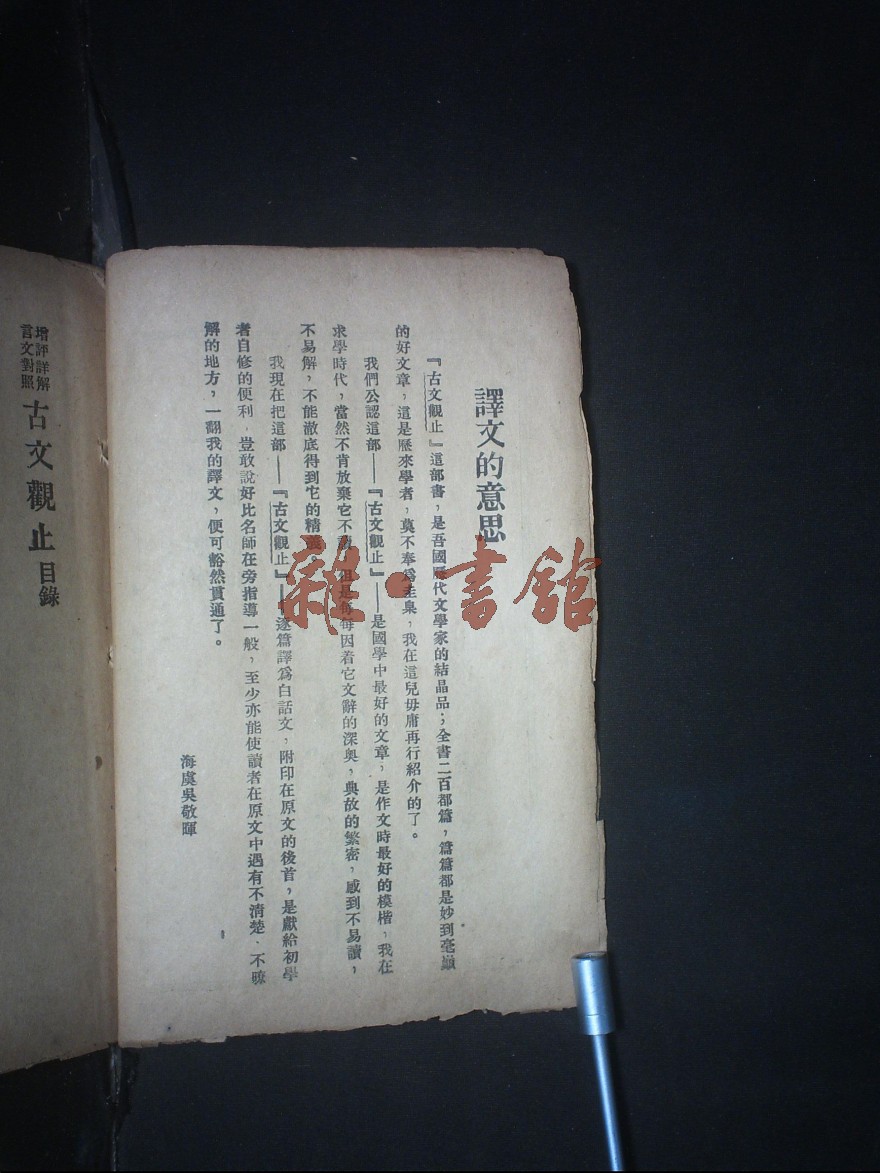 譯文的意思
『古文觀止』這部書，是吾國歷代文學家的結晶品；全書二百都篇，篇篇都是妙到毫巔
的好文章，這是歷來學者，莫不奉為圭臬，我在這兒毋庸再行紹介的了。
我們公認這部——『古文觀止』——是國學中最好的文章，是作文時最好的模楷，我在
求學時代，當然不肯放棄它不讀，但是每每因着它文辭的深奧，典故的繁密，感到不易讀，
不易解，不能澈底得到它的精義。
我現在把這部——『古文觀止』——逐篇譯為白話文，附印在原文的後首，是獻給初學
者自修的便利，豈敢說好比名師在旁指導一般，至少亦能使讀者在原文中遇有不清楚、不暸
解的地方，一翻我的譯文，便可豁然貫通了。
海虞吳敬暉
增評詳解
言文對照
古文觀止目錄
雜·書館